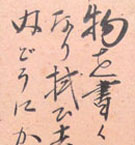 物を書く
なり拭ひ去
ぬどうにか